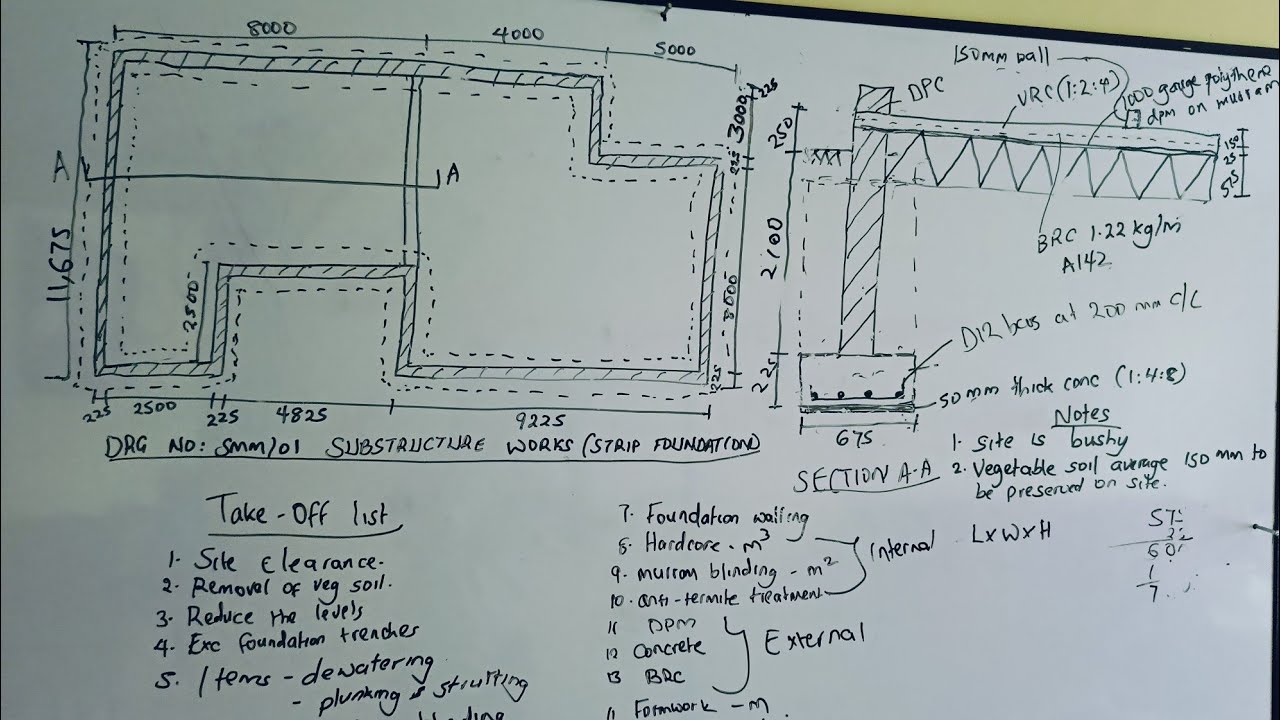 8000
4000
5000
225
3000
225
8000
225
A
A
11,675
2500
225
2500
225
4825
9225
DRG NO: SMM/01 SUBSTRUCTURE WORKS (STRIP FOUNDATION)
150mm
DPC
VRC (1:2:4)
1000 gauge polythene
dpm on murram
250
150
25
575
2100
BRC 1.22 kg/m
A142
D12 bars at 200 mm C/C
225
50mm thick conc (1:4:8)
675
SECTION A-A
Notes
1. Site is bushy
2. Vegetable soil average 150 mm to
be preserved on site.
Take-Off list
1. Site Clearance.
2. Removal of veg soil.
3. Reduce the levels
4. Exc foundation trenches
5. Items - dewatering
- plunking & strutting
7. Foundation walling
8. Hardcore - m³
9. murram blinding - m²
10. anti-termite treatment
Internal
11 DPM
12 Concrete
13 BRC
External
Formwork - m
LxWxH